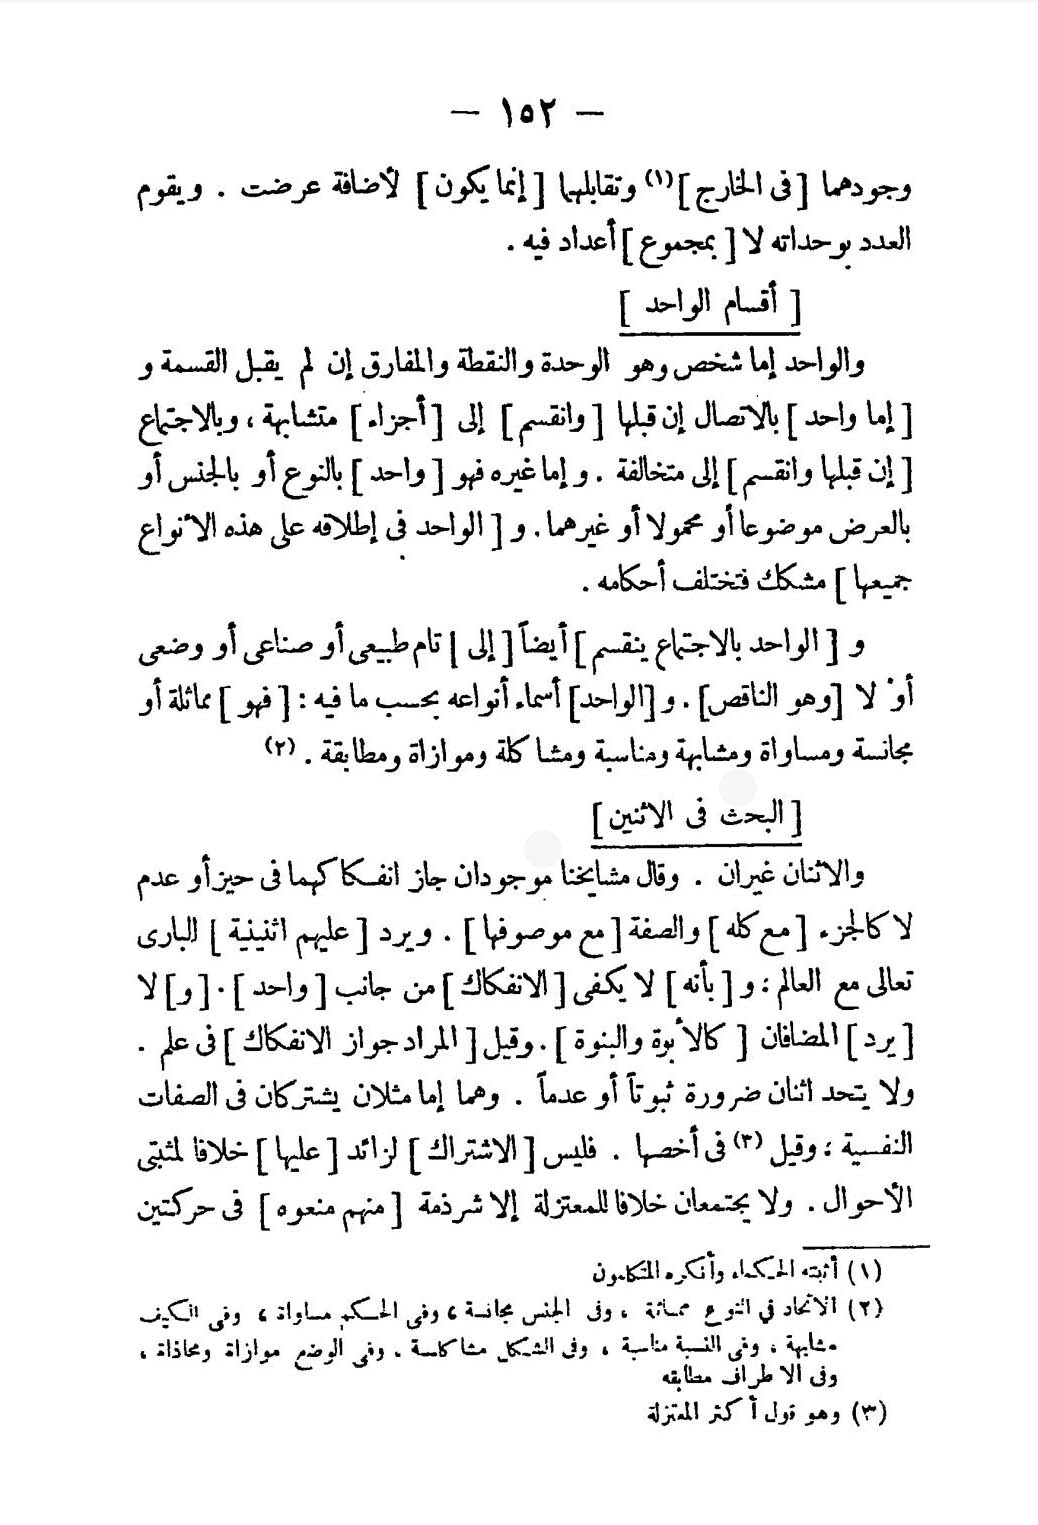 — ١٥٢ —
وجودهما [ فى الخارج ] (١) وتقابلهما [ إنما يكون ] لأضافة عرضت . ويقوم
العدد بوحداته لا [ بمجموع ] أعداد فيه .
[ أقسام الواحد ]
والواحد إما شخص وهو الوحدة والنقطة والمفارق إن لم يقبل القسمة و
[ إما واحد ] بالاتصال إن قبلها [ وانقسم ] إلى [ أجزاء ] متشابهة ، وبالاجتماع
[ إن قبلها وانقسم ] إلى متخالفة . وإما غيره فهو [ واحد ] بالنوع أو بالجنس أو
بالعرض موضوعا أو محمولا أو غيرهما . و [ الواحد فى إطلاقه على هذه الأنواع
جميعها ] مشكك فتختلف أحكامه .
و [ الواحد بالاجتماع ينقسم ] أيضاً [ إلى ] تام طبيعى أو صناعى أو وضعى
أوْ لا [ وهو الناقص ] . و [ الواحد ] أسماء أنواعه بحسب ما فيه : [ فهو ] مماثلة أو
مجانسة ومساواة ومشابهة ومناسبة ومشاكلة وموازاة ومطابقة . (٢)
[ البحث فى الاثنين ]
والاثنان غيران . وقال مشايخنا موجودان جاز انفكاكهما فى حيز أو عدم
لا كالجزء [ مع كله ] والصفة [ مع موصوفها ] . ويرد [ عليهم اثنينية ] البارى
تعالى مع العالم ؛ و [ بأنه ] لا يكفى [ الانفكاك ] من جانب [ واحد ] . [ و ] لا
[ يرد ] المضافان [ كالأبوة والبنوة ] . وقيل [ المراد جواز الانفكاك ] فى علم .
ولا يتحد اثنان ضرورة ثبوتاً أو عدماً . وهما إما مثلان يشتركان فى الصفات
النفسية ؛ وقيل (٣) فى أخصها . فليس [ الاشتراك ] لزائد [ عليها ] خلافا لمثبتى
الأحوال . ولا يجتمعان خلافا للمعتزلة إلا شرذمة [ منهم منعوه ] فى حركتين
(١) أثبته الحكماء وأنكره المتكلمون
(٢) الاتحاد في النوع مماثلة ، وفى الجنس مجانسة ، وفى الحكم مساواة ، وفى الكيف
مشابهة ، وفى النسبة مناسبة ، وفى الشكل مشاكلة . وفى الوضع موازاة ومحاذاة ،
وفى الاطراف مطابقه
(٣) وهو قول أكثر المعتزلة